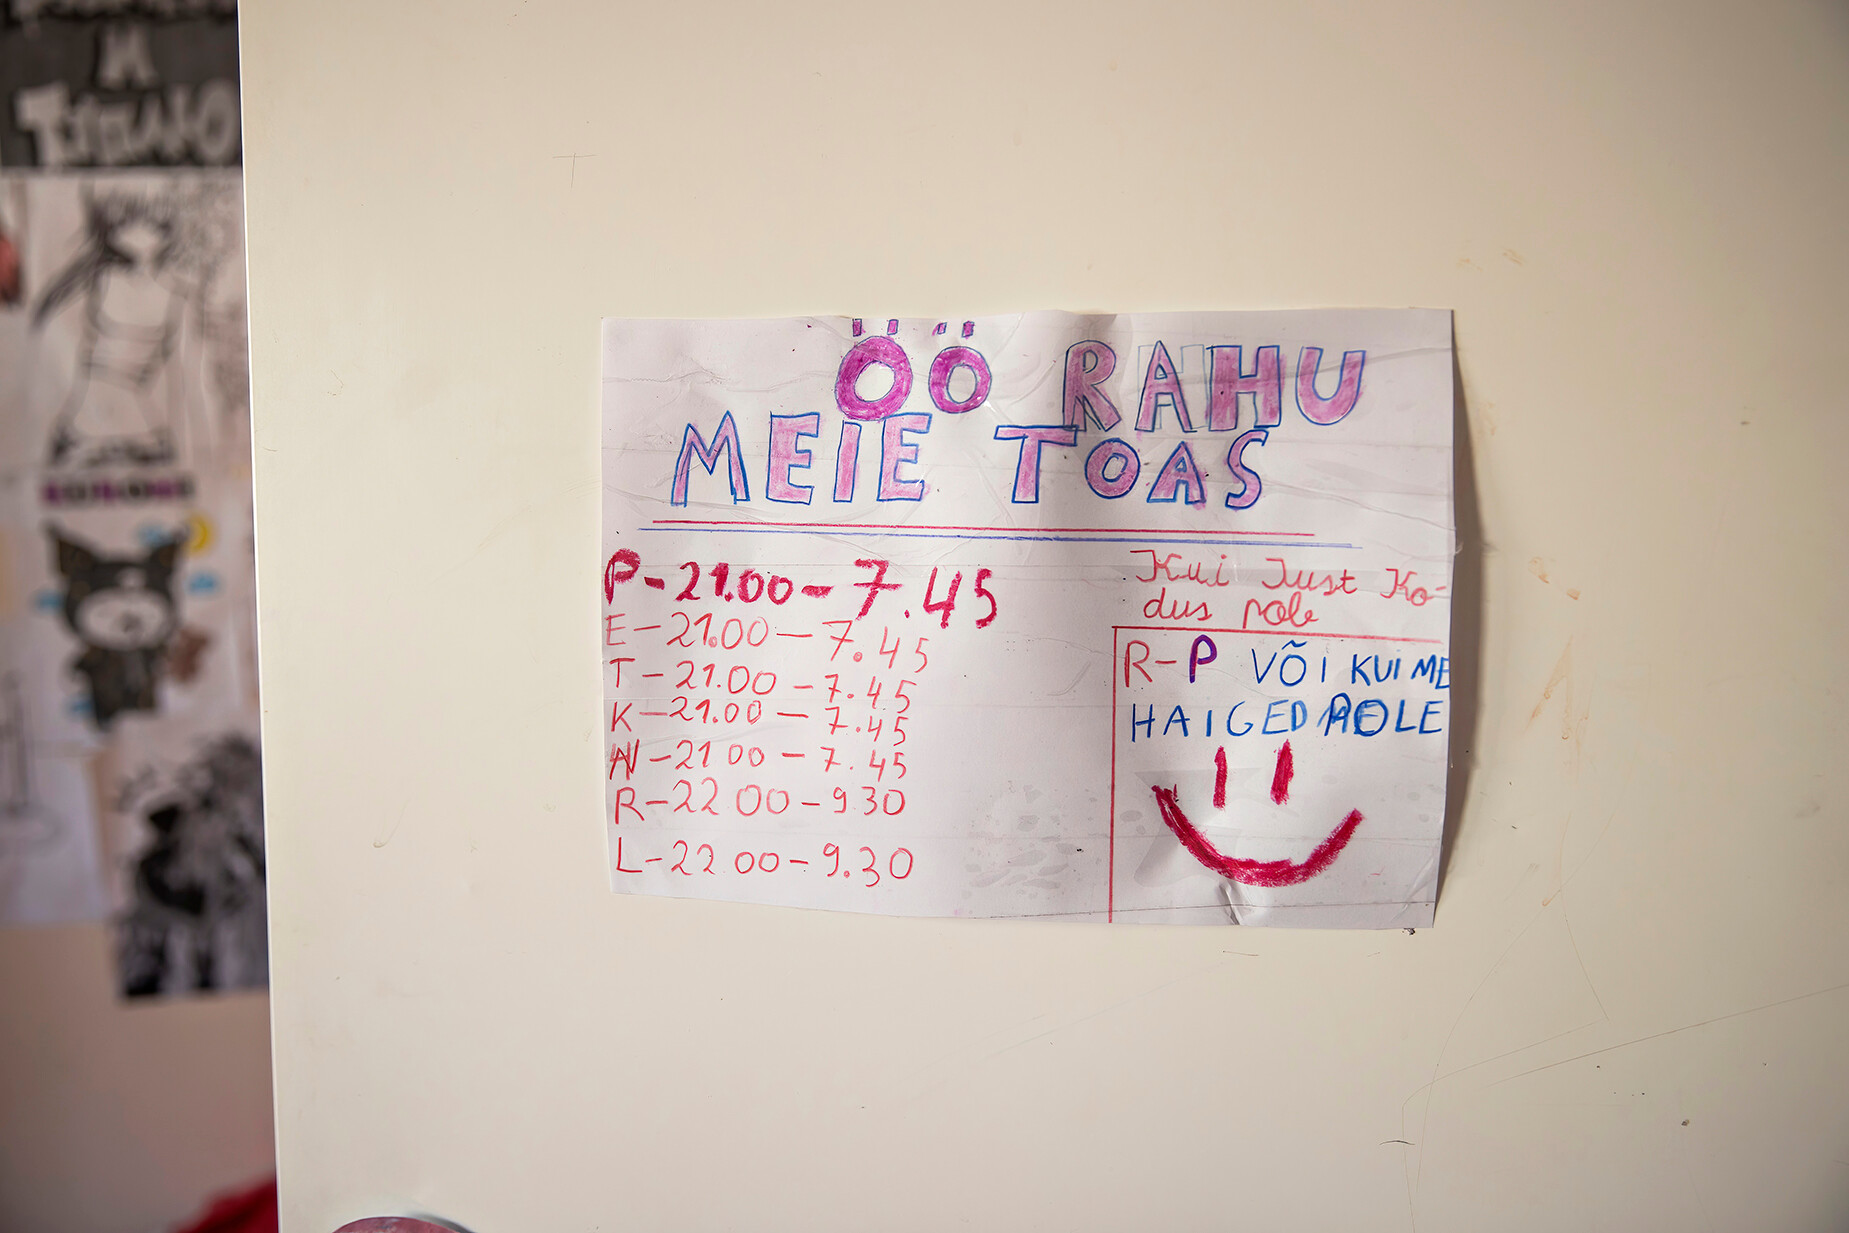 ÖÖ RAHU
MEIE TOAS
P-21.00-7.45
E-21.00-7.45
T-21.00-7.45
K-21.00-7.45
N-21 00-7.45
R-22 00-9 30
L-22 00-9.30
Kui Just Ko-
dus pole
R-P VÕI KUI ME
HAIGED POLE